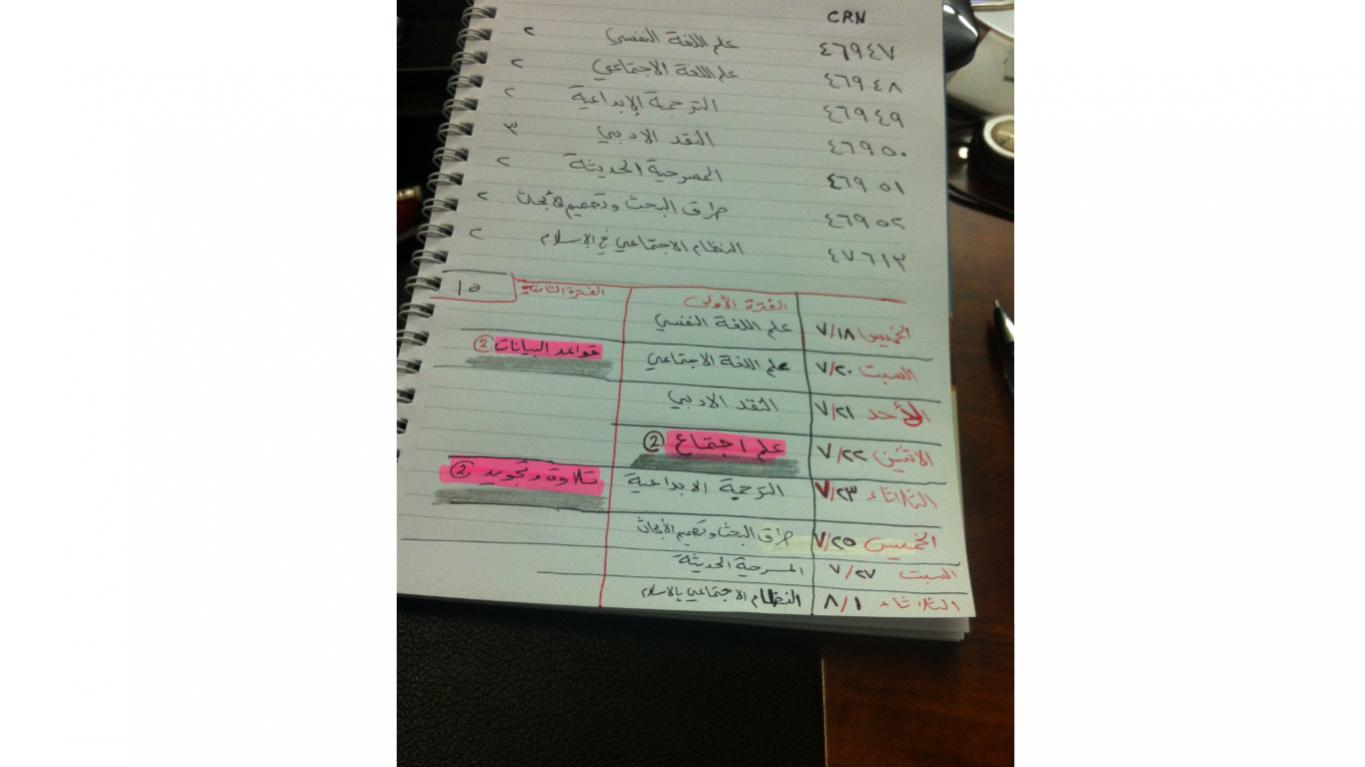 CRN
٤٦٩٤٧ علم اللغة النفسي ٢
٤٦٩٤٨ علم اللغة الاجتماعي ٢
٤٦٩٤٩ الترجمة الإبداعية ٢
٤٦٩٥٠ النقد الادبي ٣
٤٦٩٥١ المسرحية الحديثة ٢
٤٦٩٥٢ طرق البحث وتصميم الأبحاث ٢
٤٧٦١٢ النظام الاجتماعي في الإسلام ٢
١٥
الفترة الأولى الفترة الثانية
الخميس ٧/١٨ علم اللغة النفسي
السبت ٧/٢٠ علم اللغة الاجتماعي قواعد البيانات ②
الأحد ٧/٢١ النقد الادبي
الاثنين ٧/٢٢ علم اجتماع ②
الثلاثاء ٧/٢٣ الترجمة الابداعية تلاوة وتجويد ②
الخميس ٧/٢٥ طرق البحث وتصميم الأبحاث
السبت ٧/٢٧ المسرحية الحديثة
الثلاثاء ٨/١ النظام الاجتماعي بالاسلام